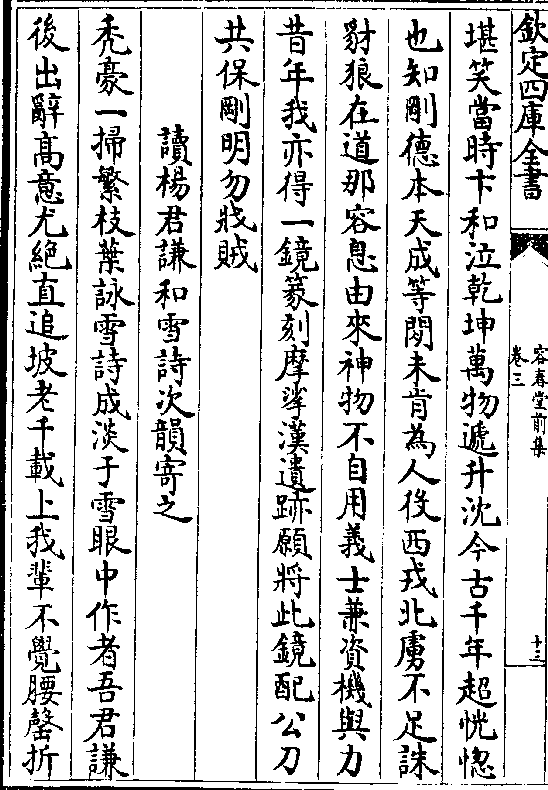 欽定四庫全書
容春堂前集
卷三
十三
堪笑當時卞和泣乾坤萬物遞升沈今古千年超恍惚
也知剛德本天成等閑未肯為人役西戎北虜不足誅
豺狼在道那容息由來神物不自用義士兼資機與力
昔年我亦得一鏡篆刻摩挲漢遺跡願將此鏡配公刀
共保剛明勿戕賊
讀楊君謙和雪詩次韻寄之
禿豪一掃繁枝葉詠雪詩成淡于雪眼中作者吾君謙
後出辭高意尤絕直追坡老千載上我輩不覺腰磬折